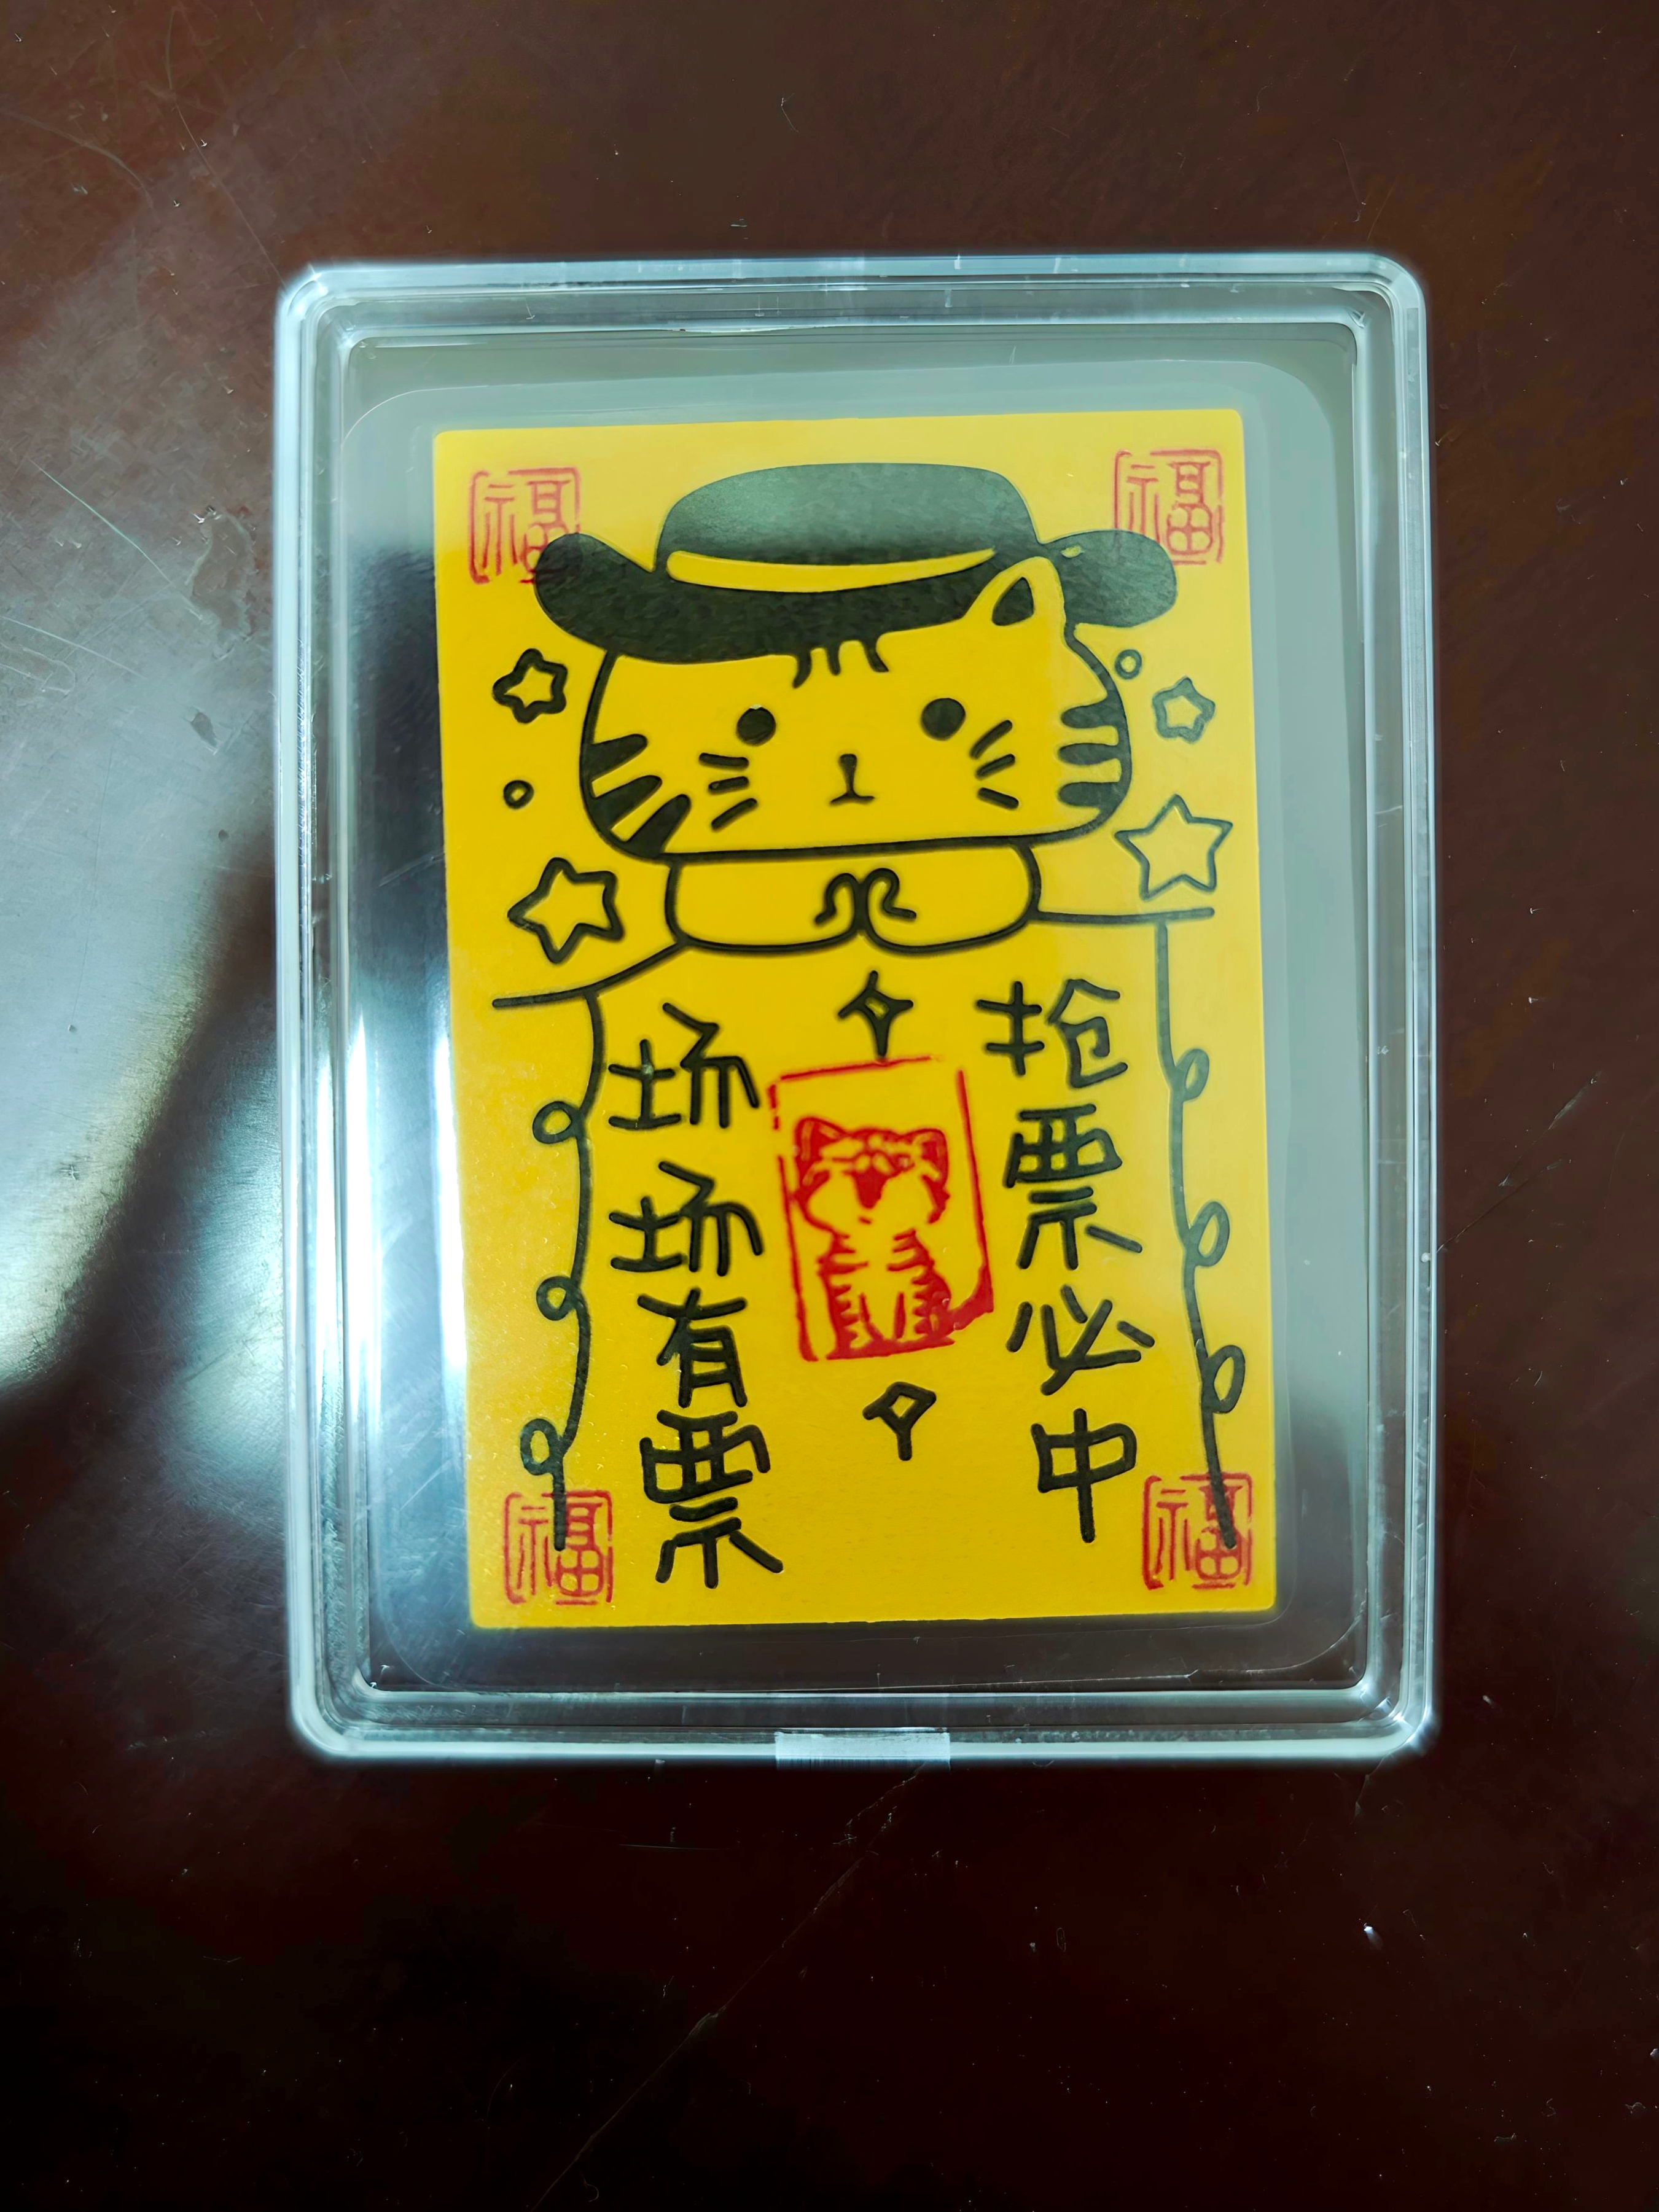 福
福
抢票必中
场场有票
福
福